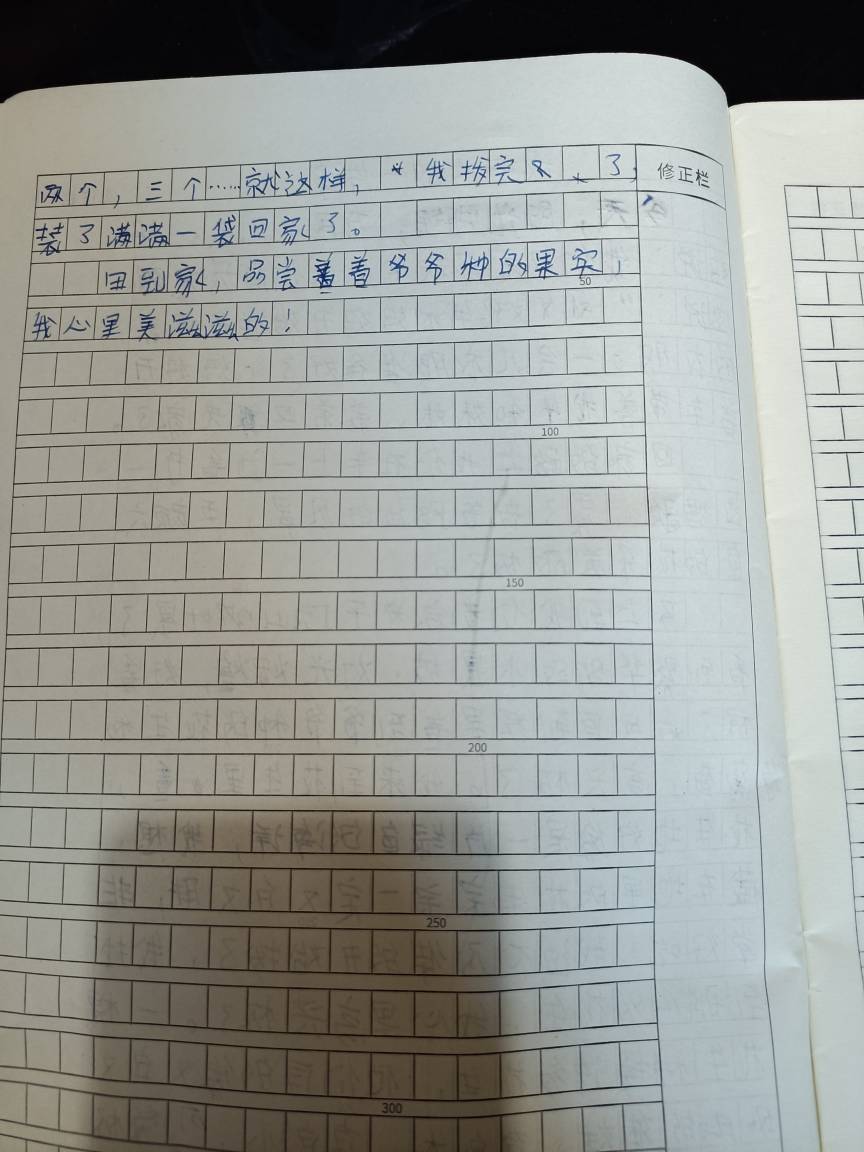 两个，三个……就这样，我拔完了，
修正栏
装了满满一袋回家了。
回到家，品尝着爷爷种的果实，
50
我心里美滋滋的！
100
150
200
250
300